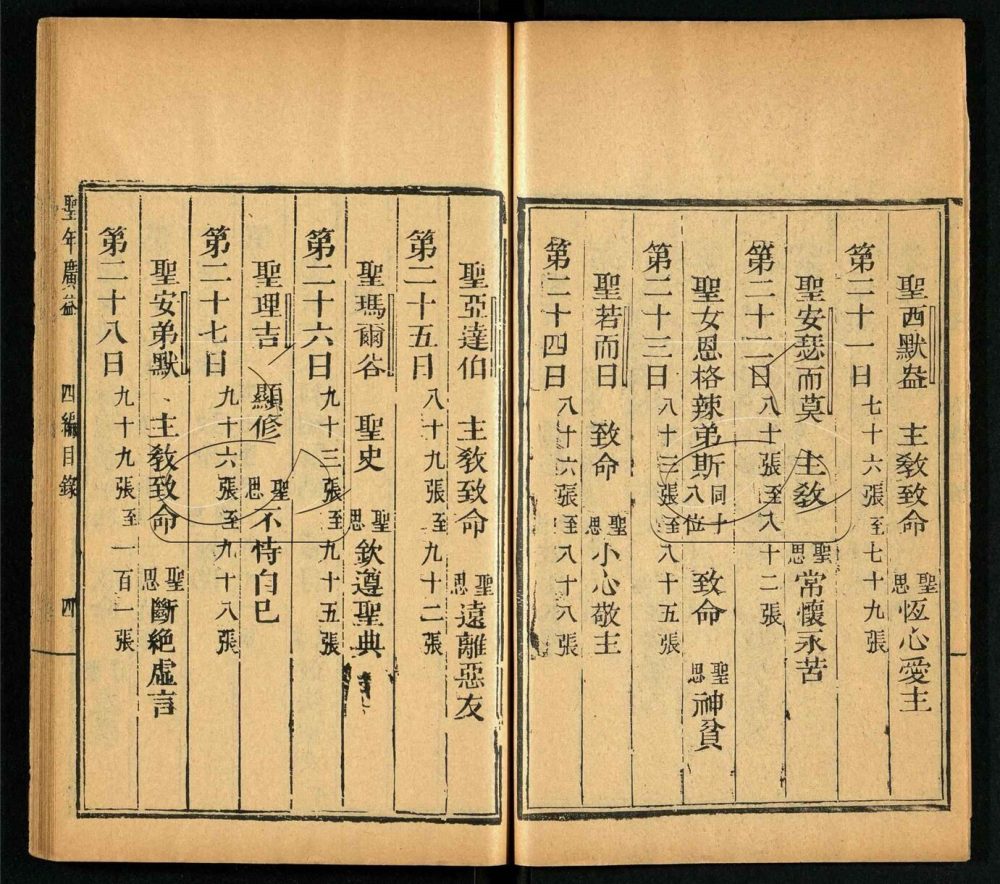 聖西默盎 主教致命 聖思恆心愛主
第二十一日 七十六張至七十九張
聖安瑟而莫 主教 聖思常懷永苦
第二十二日 八十張至八十二張
聖女恩格辣弟斯同十八位 致命 聖思神貧
第二十三日 八十三張至八十五張
聖若而日 致命 聖思小心敬主
第二十四日 八十六張至八十八張
聖亞達伯 主教致命 聖思遠離惡友
第二十五日 八十九張至九十二張
聖瑪爾谷 聖史 聖思欽遵聖典
第二十六日 九十三張至九十五張
聖理吉 顯修 聖思不恃自己
第二十七日 九十六張至九十八張
聖安弟默 主教致命 聖思斷絕虛言
第二十八日 九十九張至一百一張
聖年廣益 四編目錄 四